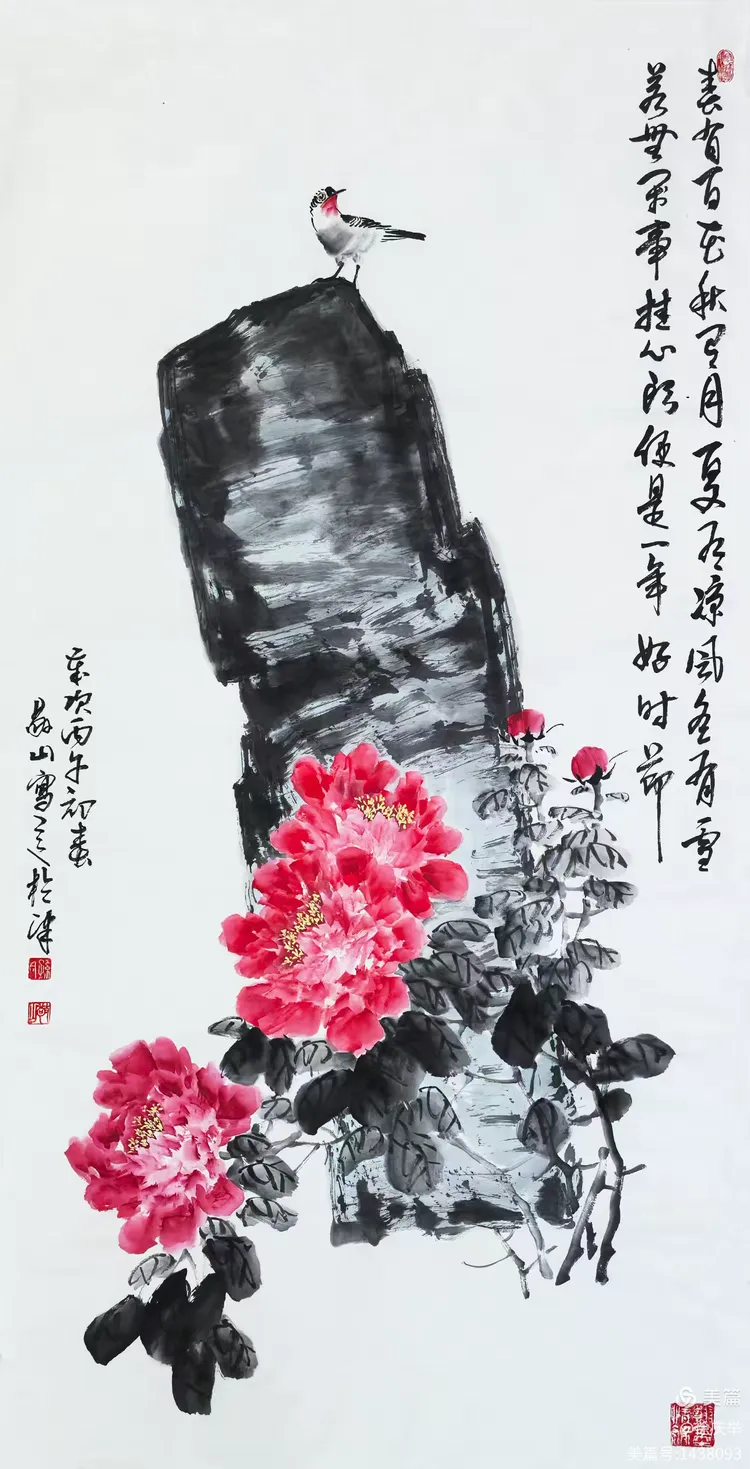 春有百花秋有月夏有凉风冬有雪
若無闲事挂心头便是一年好时节
岁次丙午初春
山寫於津
美篇
美篇号:1438093